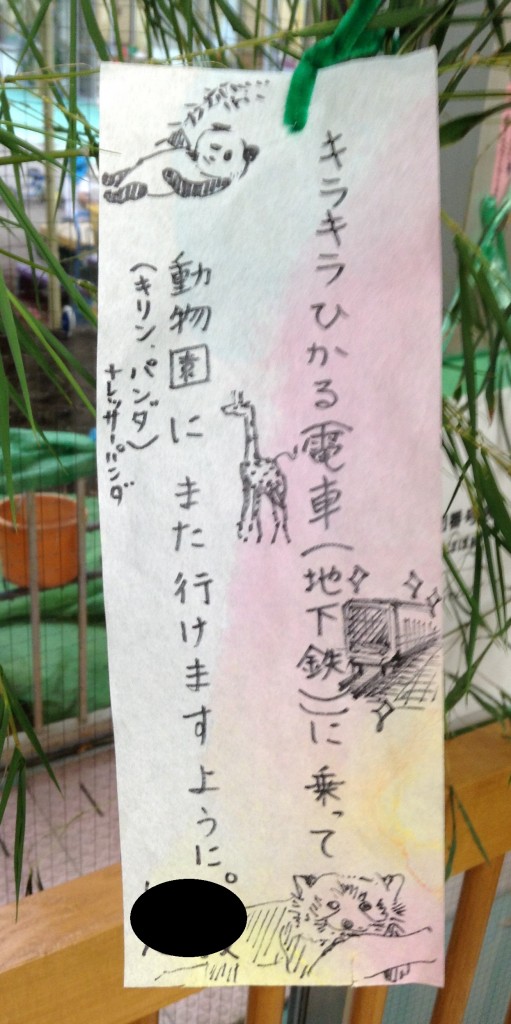 キラキラひかる電車(地下鉄)に乗って
動物園にまた行けますように。
(キリン、パンダ)
+レッサーパンダ